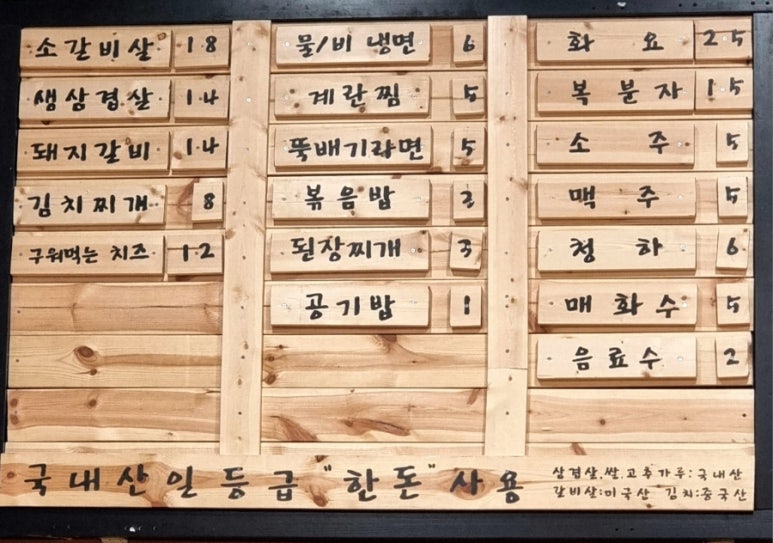 소갈비살 18
생삼겹살 14
돼지갈비 14
김치찌개 8
구워먹는 치즈 12
물/비 냉면 6
계란찜 5
뚝배기라면 5
볶음밥 2
된장찌개 3
공기밥 1
화요 25
복분자 15
소주 5
맥주 5
청하 6
매화수 5
음료수 2
국내산 일등급 "한돈" 사용
삼겹살,쌀,고추가루:국내산
갈비살:미국산 김치:중국산